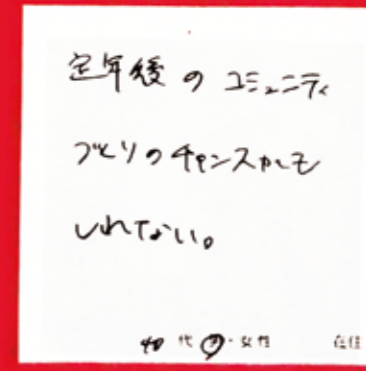 定年後のコミュニティ
づくりのチャンスかも
しれない。
40代 男・女性 在住